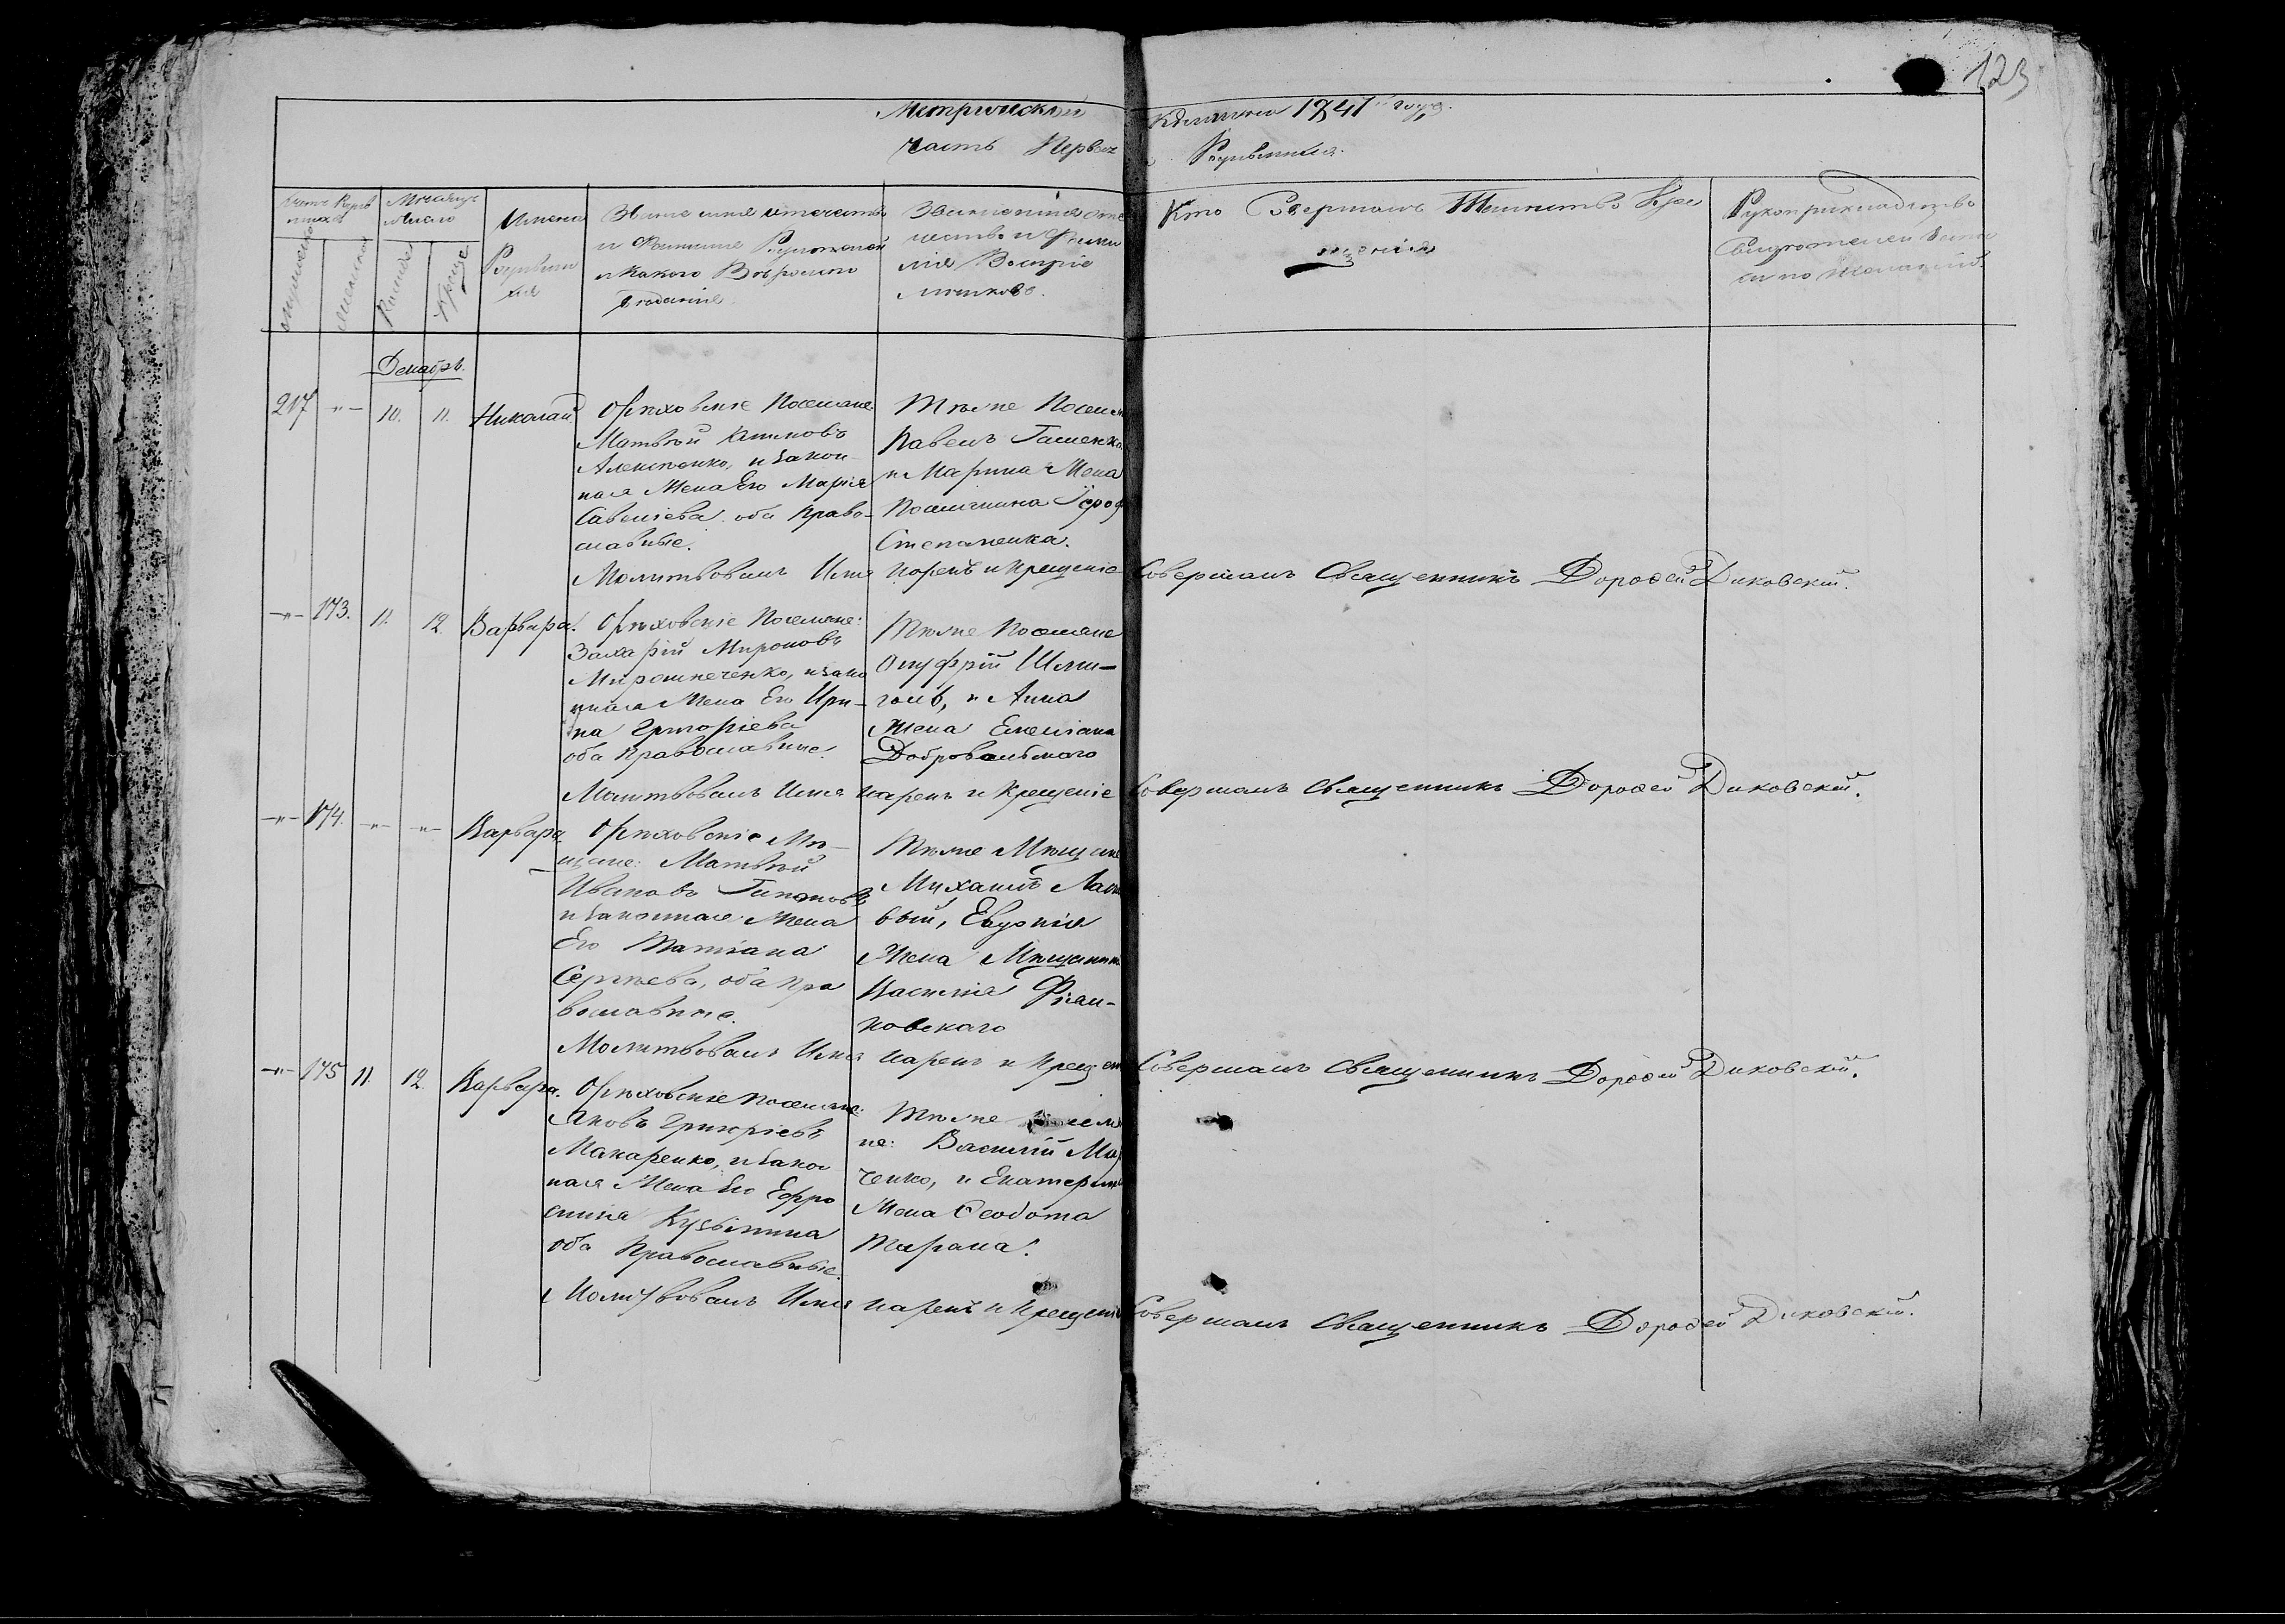 123
Метрической книги 1841 года.
Часть Первая о Родившихся.
Счетъ Родившихся
Мѣсяцъ и число
мужеска
женска
Рожденія
Крещенія
Имена Родившихся
Званіе имя отчество
и Фамилія Родителей
и какого Вѣроисповѣданія.
Званіе имя отчество и Фамилія Воспріемниковъ.
Кто Совершалъ Таинство Крещенія
Рукоприкладство
Свидѣтелей
по желанію.
Декабрь.
217 -"- 10. 11. Николай
Орѣховскіе Поселяне
Матвѣй
Алексѣенко, и закон
ная Жена Его Марія
Савеліева оба Право-
славные.
Тѣже Поселя
Павелъ Гашенко
и Марина Жена
Поселянина
Степаненка.
Молитвовалъ Имя нарекъ и крещеніе Совершалъ Священникъ Дороѳей Диковскій.
-"- 173. 11. 12. Варвара.
Орѣховскіе Поселяне:
Захарій Мироновъ
Мирошнеченко, и зако
нная Жена Его Ири-
на Григоріева
оба Православные.
Тѣже Поселяне
Онуфрій Шми-
голь, и Анна
Жена Емеліана
Добровольскаго
Молитвовалъ Имя нарекъ и Крещеніе Совершалъ Священникъ Дороѳей Диковскій.
-"- 174. -"- -"- Варвара
Орѣховскіе Мѣ-
щане: Матвѣй
Ивановъ
и законная Жена
Его Татіана
Сергѣева, оба пра
вославные.
Тѣже Мѣщане
Михаилъ
вый, Евдокія
Жена Мѣщанина
Василія
новскаго
Молитвовалъ Имя нарекъ и Крещеніе Совершалъ Священникъ Дороѳей Диковскій.
-"- 175 11. 12. Варвара.
Орѣховскіе Поселяне:
Яковъ Григоріевъ
Макаренко, и закон
ная Жена Его Ефро
синія Кузьмина
оба Православные.
Тѣже Поселя
не: Василій
ченко, и Екатерина
Жена Ѳеодота
Тарана.
Молитвовалъ Имя нарекъ и Крещеніе Совершалъ Священникъ Дороѳей Диковскій.